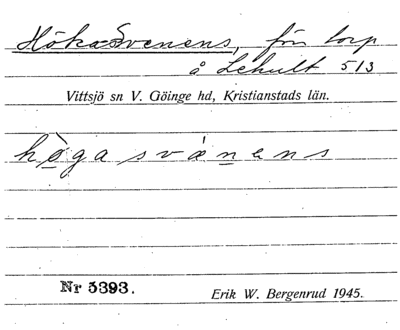 HökaSvenens, för torp
å Lehult 513
Vittsjö sn V. Göinge hd, Kristianstads län.
hògasvànens
Nr 5393.
Erik W. Bergenrud 1945.